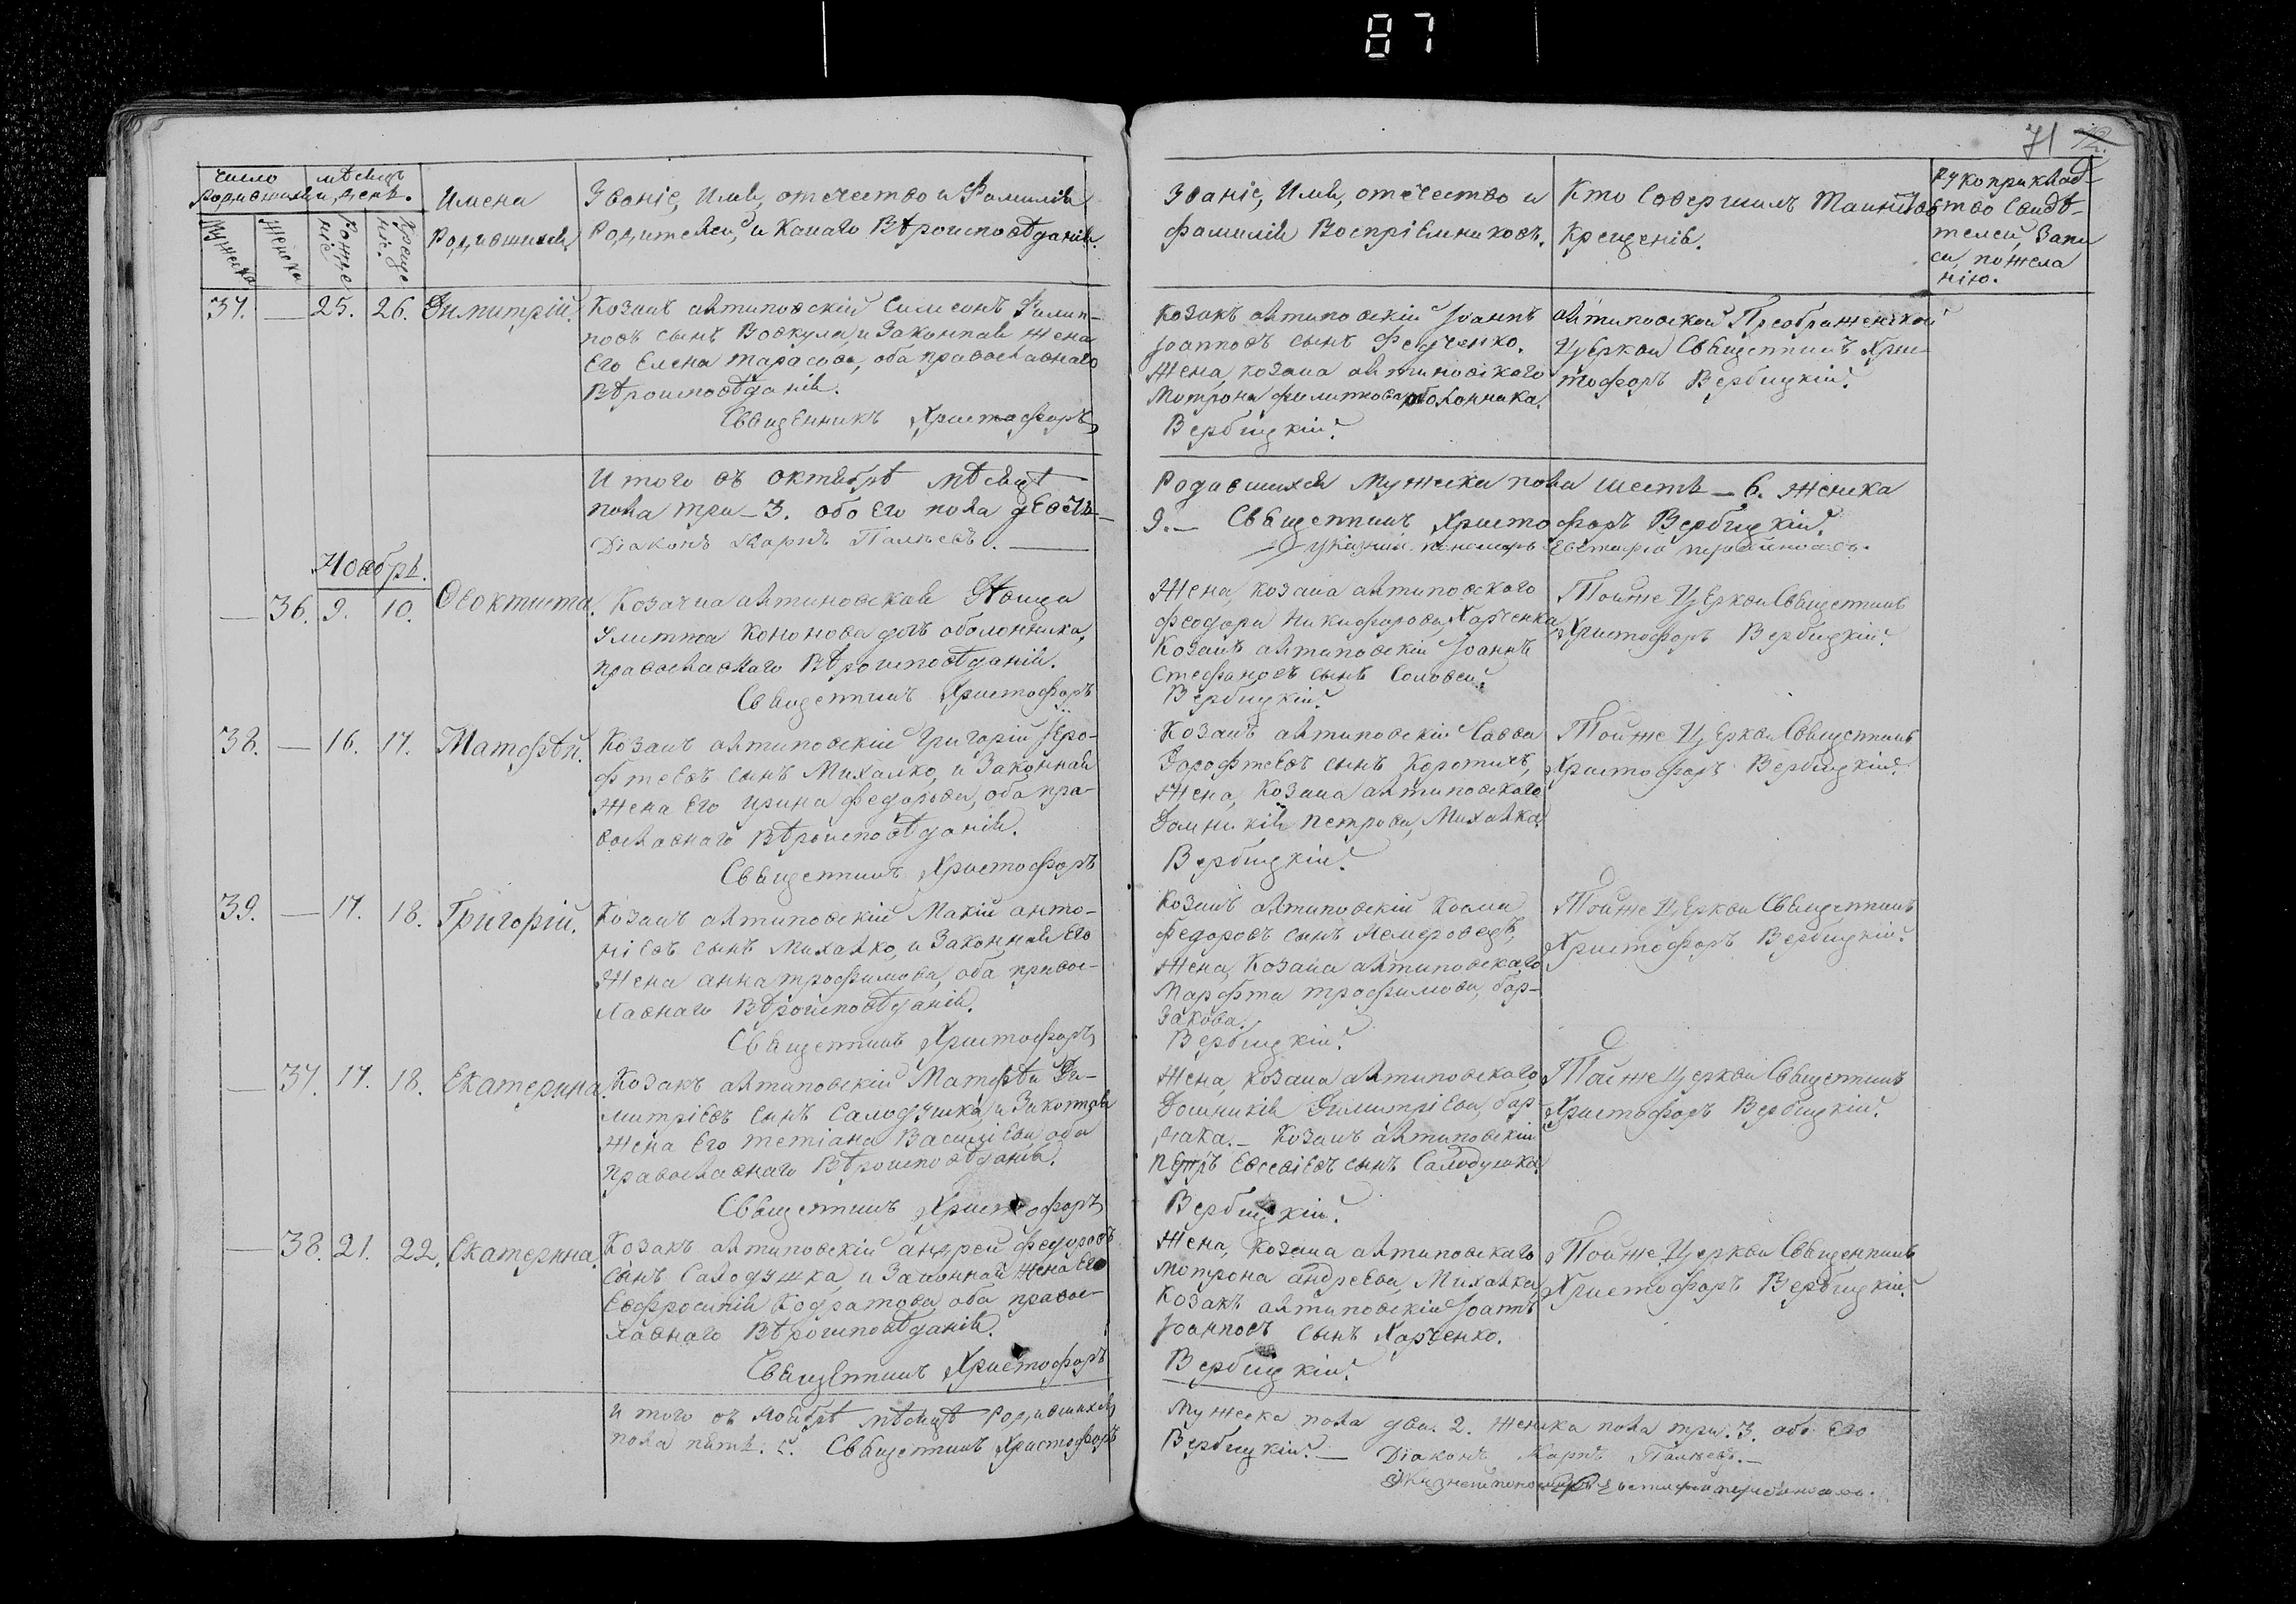 87
71 72.
Число родившихся
мѣсяцъ и день.
Мужеска
Женска
Рожденіе
Крещеніе.
Имена
Родившихся
Званіе, Имя, отечество и Фамилія
Родителей, и Какаго Вѣроисповѣданія.
Званіе, Имя, отечество и
фамилія Воспріемниковъ.
Кто Совершилъ Таинство
Крещенія.
Рукоприклад-
ство Свидѣ-
телей, Запи
си, по жела
нію.
37. — 25. 26. Димитрій.
Козакъ антиповскій Симеонъ Филип-
повъ сынъ Вовкула, и Законная жена
Его Елена тарасова, оба православнаго
Вѣроисповѣданія.
Священникъ Христофоръ
Козакъ антиповскій Іоаннъ
Іоанновъ сынъ Федченко.
Жена, козака антиповскаго
Мотрона филипова оболонника.
Вербицкій.
антиповской Преображенской
Церкви Священникъ Хрис-
тофоръ Вербицкій.
Итого въ октябрѣ мѣсяцѣ
Родившихся Мужеска пола шесть — 6. Женска
пола три — 3. обоЕго пола девять —
9. — Священникъ Христофоръ Вербицкій.
Діаконъ Карпъ
пономарь
Ноябрь.
— 36. 9. 10. Феоктиста.
Козачка антиповская девица
Улитта Кононова дочь оболонника,
православнаго Вѣроисповѣданія.
Священникъ Христофоръ
Жена, козака антиповского
феодора Никифорова, Харченка,
Козакъ антиповскій Іоаннъ
Стефановъ сынъ Соловей.
Вербицкій.
Тойже Церкви Священникъ
Христофоръ Вербицкій.
38. — 16. 17. Матфѣй.
Козакъ антиповскій Григорій Іеро-
фѣевъ сынъ Михалко, и Законная
Жена Его ирина федорова, оба пра-
вославнаго Вѣроисповѣданія.
Священникъ Христофоръ
Козакъ антиповскій Савва
Дорофѣевъ сынъ Коротичъ,
Жена, Козака антиповскаго
Домникія петрова, Михалка.
Вербицкій.
Тойже Церкви Священникъ
Христофоръ Вербицкій.
39. — 17. 18. Григорій.
Козакъ антиповскій Макій анто-
ніевъ сынъ Михалко, и Законная Его
Жена анна трофимова, оба правос-
лавнаго Вѣроисповѣданія.
Священникъ Христофоръ
Козакъ антиповскій Косма
Федоровъ сынъ
Жена, Козака антиповскаго
Марфа трофимова, бар-
закова.
Вербицкій.
Тойже Церкви Священникъ
Христофоръ Вербицкій.
— 37. 17. 18. Екатерина.
Козакъ антиповскій Матфѣй Ди-
митріевъ сынъ Салодушка, и Законная
Жена Его тетіана Василіева, оба
православнаго Вѣроисповѣданія.
Священникъ Христофоръ
Жена, козака антиповскаго,
Домникія Димитріева,
Козакъ антиповскій
петръ Евсевіевъ сынъ Салодушка.
Вербицкій.
Тойже Церкви Священникъ
Христофоръ Вербицкій.
— 38. 21. 22. Екатерина.
Козакъ антиповскій андрей Федоровъ
Сынъ Салодушка, и Законная жена Его
Евфросинія Кодратова, оба правос-
лавнаго Вѣроисповѣданія.
Священникъ Христофоръ
Жена, козака антиповскаго
Мотрона андреева, Михалка,
Козакъ антиповскій Іоаннъ
Іоанновъ сынъ Харченко.
Вербицкій.
Тойже Церкви Священникъ
Христофоръ Вербицкій.
Итого въ Ноябрѣ мѣсяцѣ Родившихся
Мужеска пола два. 2. женска пола три. 3. обо Его
пола пять. 5. Священникъ Христофоръ
Вербицкій. — Діаконъ Карпъ